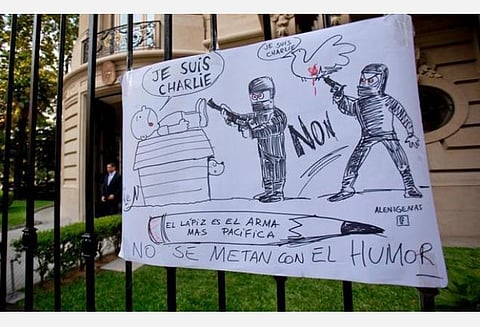 JE SUIS
CHARLIE
JE SUIS
CHARLIE
NON
ALENIGENAS
EL LÁPIZ ES EL ARMA
MAS PACIFICA
NO SE METAN CON EL HUMOR